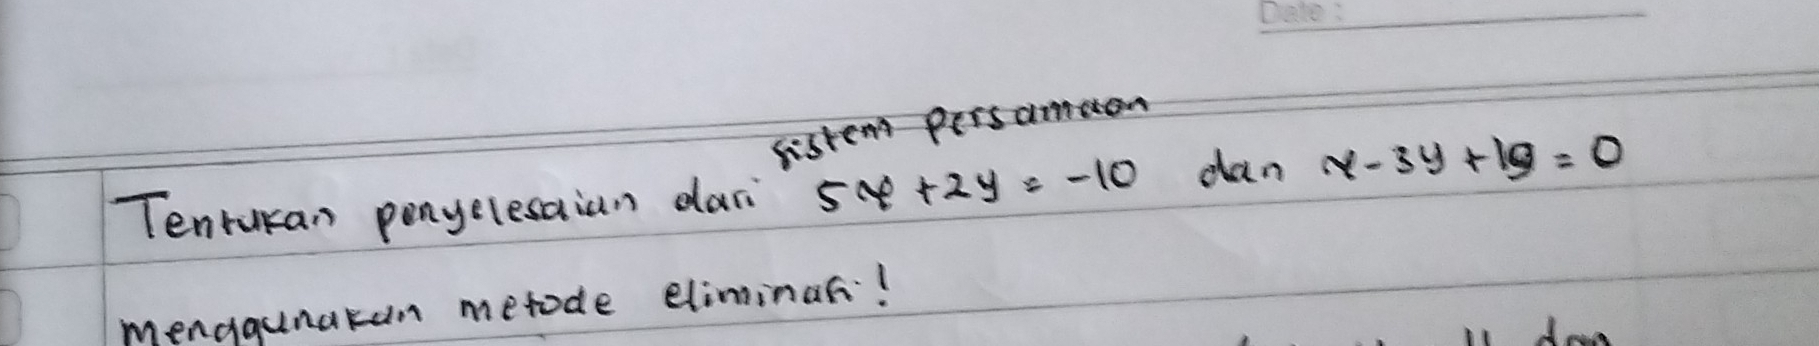 Date :
sistem persamaan
Tentukan penyelesaian dari 5x + 2y = -10 dan x - 3y + 19 = 0
menggunakan metode eliminasi !
11 dan